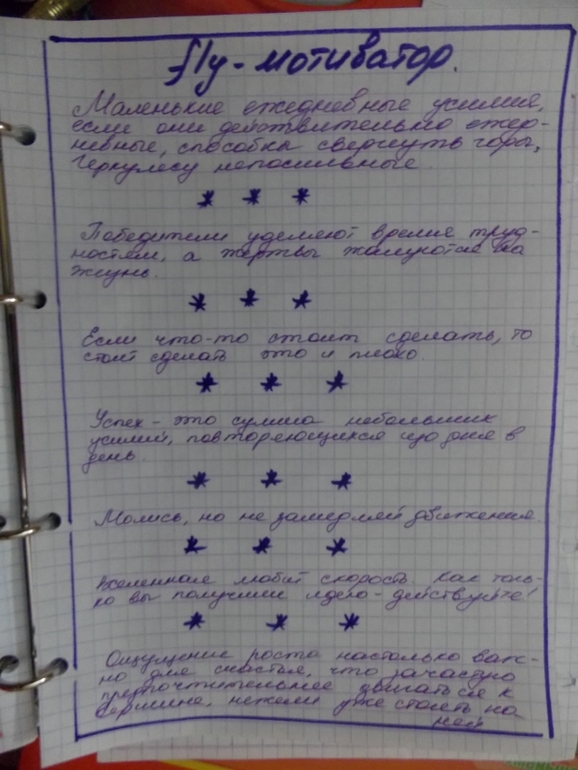 fly-мотиватор.
Маленькие ежедневные усилия,
если они действительно ежед-
невные, способны свернуть горы,
Геркулесу непосильные.
* * *
Победители уделяют время труд-
ностям, а жертвы жалуются на
жизнь.
* * *
Если что-то стоит сделать, то
стоит сделать это и плохо.
* * *
Успех - это сумма небольших
усилий, повторяющихся изо дня в
день.
* * *
Молись, но не замедляй движения.
* * *
Вселенная любит скорость. Как толь-
ко вы получили идею - действуйте!
* * *
Ощущение роста настолько важ-
но для счастья, что зачастую
предпочтительнее двигаться к
вершине, нежели уже стоять на
ней